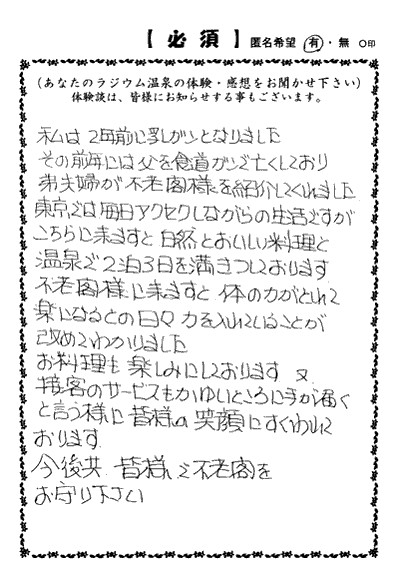 【必須】匿名希望 有・無 ○印
(あなたのラジウム温泉の体験・感想をお聞かせ下さい)
体験談は、皆様にお知らせする事もございます。
私は2年前に乳ガンとなりました
その前年には父を食道ガンで亡くしており
弟夫婦が不老閣様を紹介してくれました
東京では毎日アクセクしながらの生活ですが
こちらに来ますと自然とおいしい料理と
温泉で2泊3日を満きつしております
不老閣様に来ますと体の力がとれて
楽になるとの日々力を入れていることが
改めてわかりました
お料理も楽しみにしております 又
接客のサービスもかゆいところに手が届く
と言う様に皆様の笑顔にすくわれて
おります
今後共 皆様で不老閣を
お守り下さい